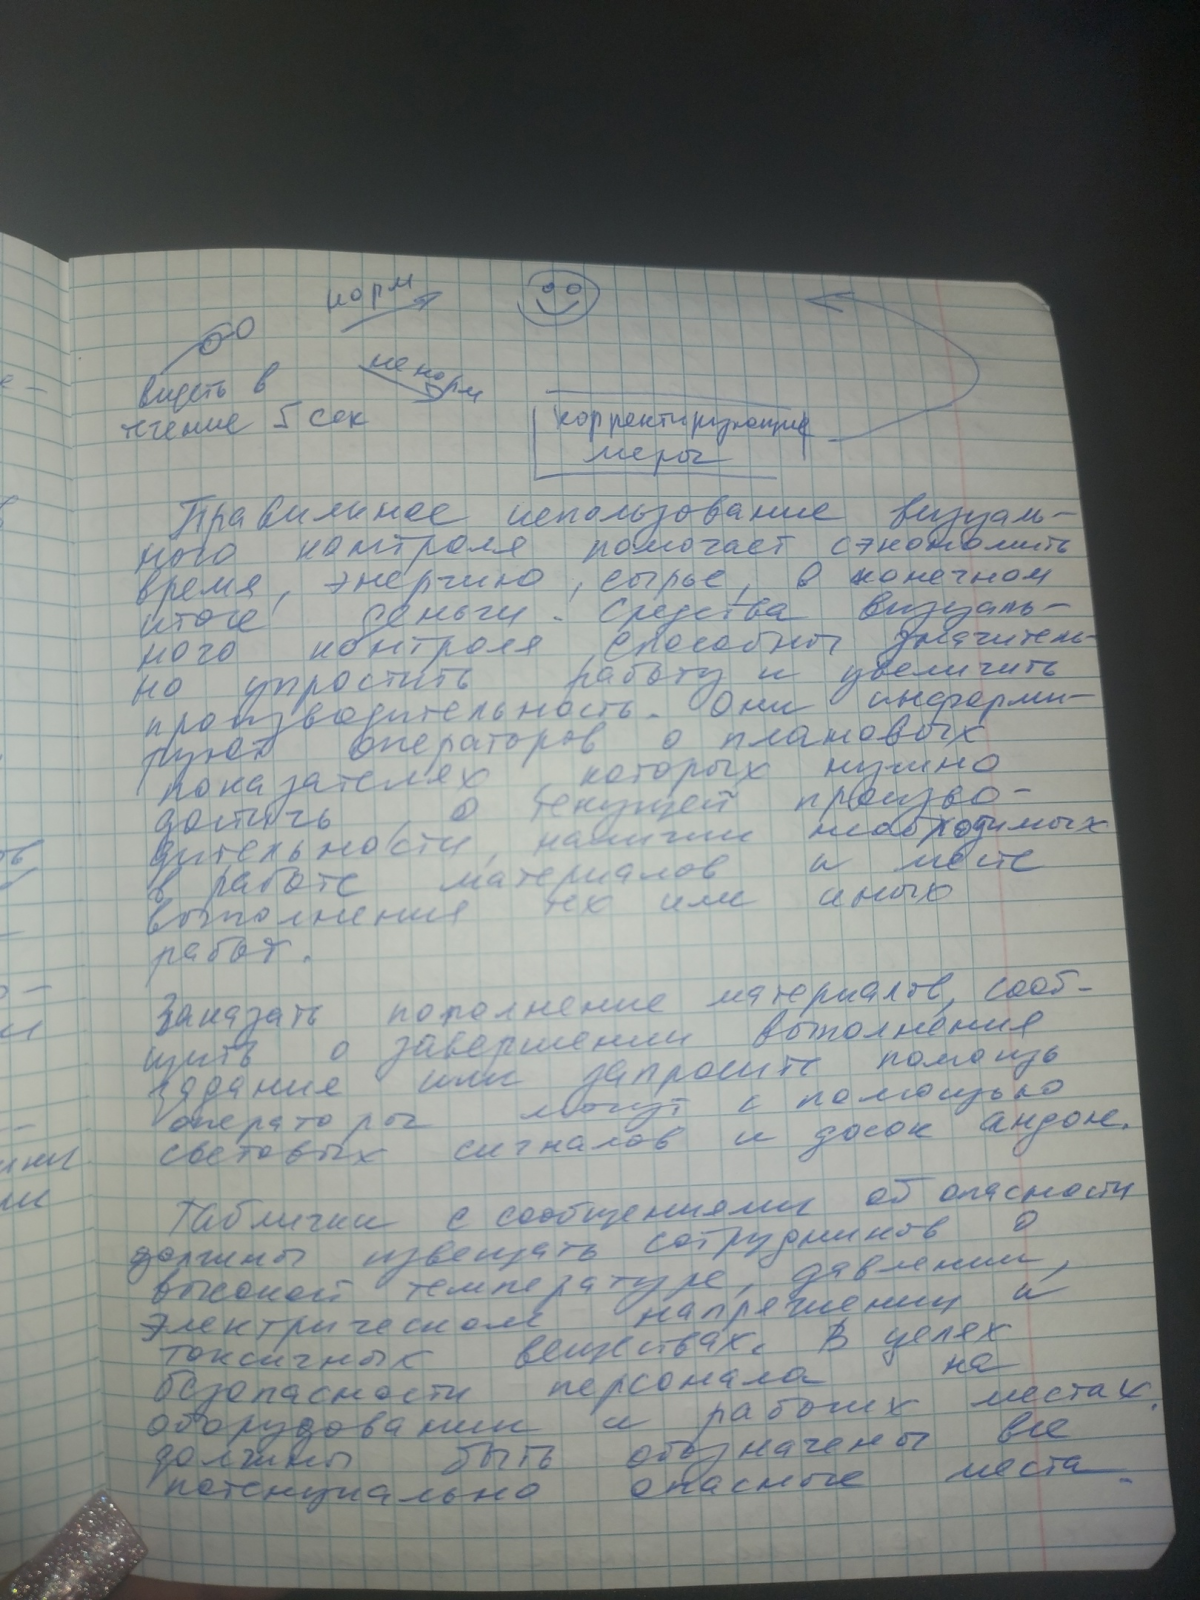 норм
не норм
видеть в
течение 5 сек
корректирующие
меры
Правильное использование визуаль-
ного контроля помогает сэкономить
время, энергию, сырье, в конечном
итоге деньги. Средства визуаль-
ного контроля способны значитель-
но упростить работу и увеличить
производительность. Они информи-
руют операторов о плановых
показателях, которых нужно
достичь, о текущей произво-
дительности, наличии необходимых
в работе материалов и месте
выполнения тех или иных
работ.
Заказать пополнение материалов, сооб-
щить о завершении выполнения
задание или запросить помощь
операторы могут с помощью
световых сигналов и досок андон.
Таблички с сообщениями об опасности
должны извещать сотрудников о
высокой температуре, давлении,
электрическом напряжении и
токсичных веществах. В целях
безопасности персонала на
оборудовании и рабочих местах
должны быть обозначены все
потенциально опасные места.